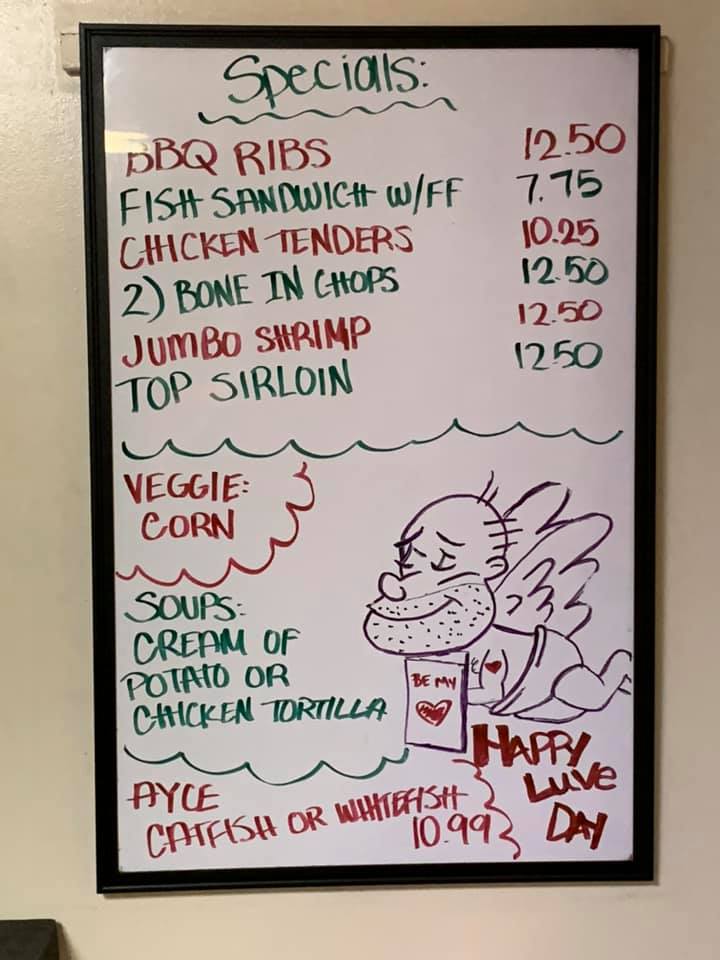 Specials:
BBQ RIBS 12.50
FISH SANDWICH W/FF 7.75
CHICKEN TENDERS 10.25
2) BONE IN CHOPS 12.50
JUMBO SHRIMP 12.50
TOP SIRLOIN 12.50
VEGGIE:
CORN
SOUPS:
CREAM OF
POTATO OR
CHICKEN TORTILLA
BE MY
HAPPY
LUVE
DAY
AYCE
CATFISH OR WHITEFISH
10.99